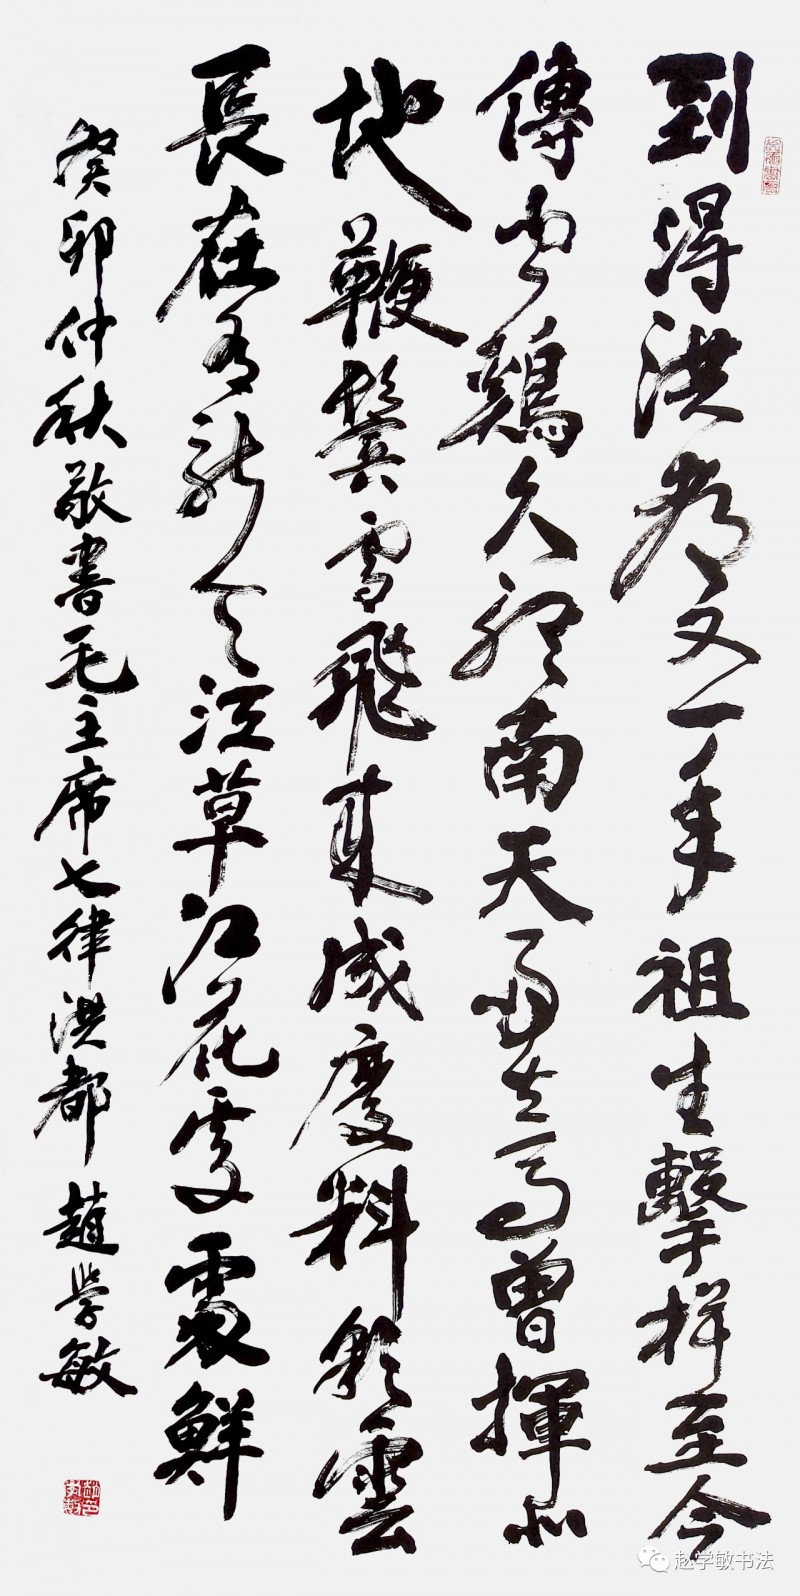 到得洪都又一年祖生擊楫至今
傳聞鷄久聽南天雨立馬曾揮北
地鞭鬢雪飛來成廢料彩雲
長在有新天江草江花處處鮮
癸卯仲秋敬書毛主席七律洪都 趙學敏
赵学敏书法